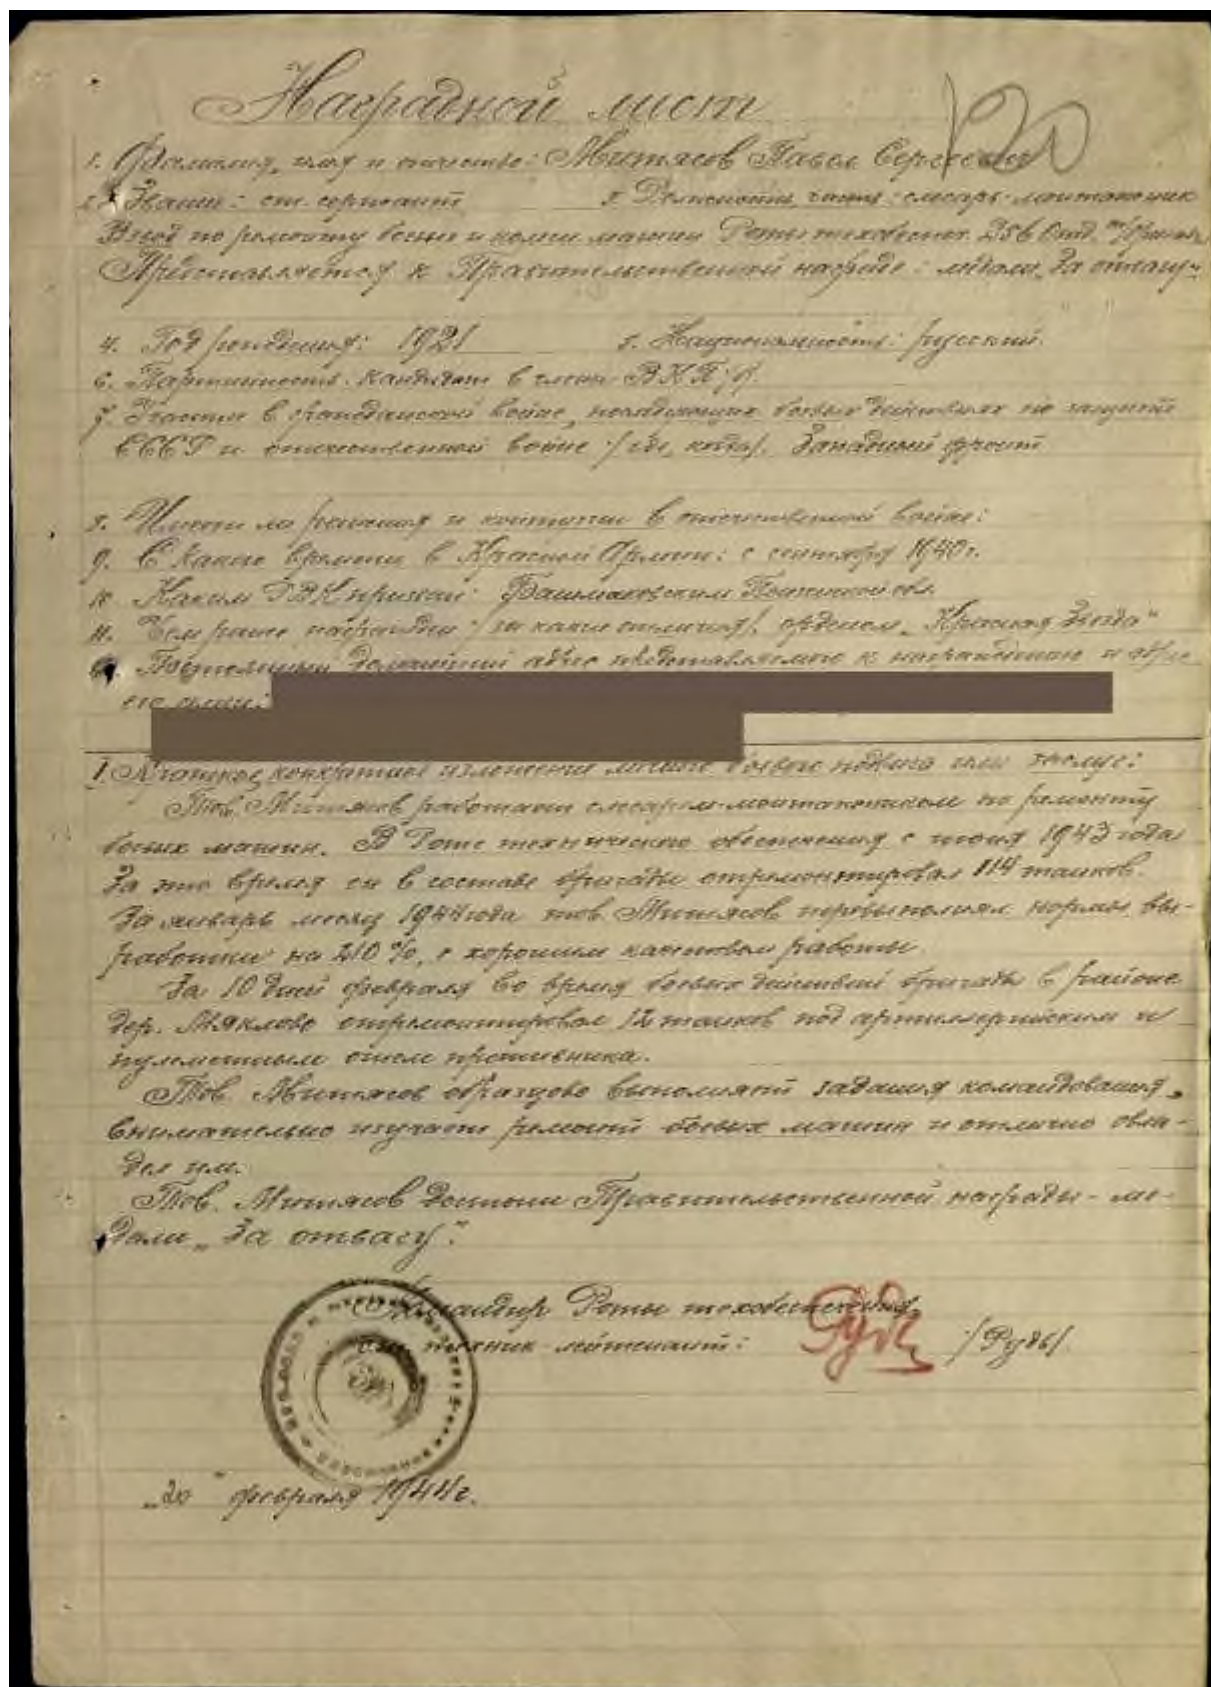 Наградной лист
1. Фамилия, имя и отчество: Митясов Павел Сергеевич
2. Звание: ст. сержант 3. Должность, часть: слесарь-монтажник
по ремонту боевых и колес. машин Роты техобеспеч. 256 Отд. т/бригады
Представляется к Правительственной награде: медали „За отвагу“
4. Год рождения: 1921 5. Национальность: русский
6. Партийность: кандидат в члены ВКП/б/.
7. Участие в гражданской войне, последующих боевых действиях по защите
СССР и отечественной войне /где, когда/. Западный фронт
8. Имеет ли ранения и контузии в отечественной войне:
9. С какого времени в Красной Армии: с сентября 1940 г.
10. Каким РВК призван: Башмаковским Пензенской обл.
11. Чем ранее награжден /за какие отличия/. орденом „Красная Звезда“
12. Постоянный домашний адрес представляемого к награждению и адрес
его семьи:
I. Краткое, конкретное изложение личного боевого подвига или заслуг:
Тов. Митясов работает слесарем-монтажником по ремонту
боевых машин. В Роте технического обеспечения с июня 1943 года
За это время он в составе бригады отремонтировал 114 танков.
За январь месяц 1944 года тов. Митясов перевыполнял нормы вы-
работки на 210%, с хорошим качеством работы.
За 10 дней февраля во время боевых действий бригады в районе
дер. Мяклово отремонтировал 12 танков под артиллерийским и
пулеметным огнем противника.
Тов. Митясов образцово выполняет задания командования,
внимательно изучает ремонт боевых машин и отлично овла-
дел им.
Тов. Митясов достоин Правительственной награды - ме-
дали „За отвагу“.
Командир Роты техобеспечения
ст. техник-лейтенант: /Рудь/
„20“ февраля 1944 г.